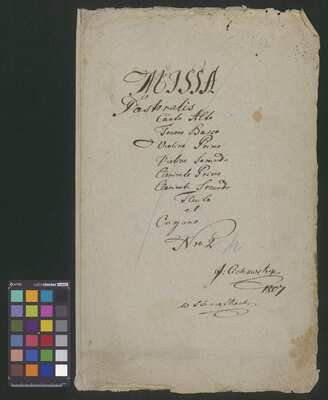 MISSA
Pastoralis
Canto Alto
Tenore Basso
Violino Primo
Violino Secundo
Clarineto Primo
Clarineto Secundo
Flauto
et
Organo
Nro 2
1807